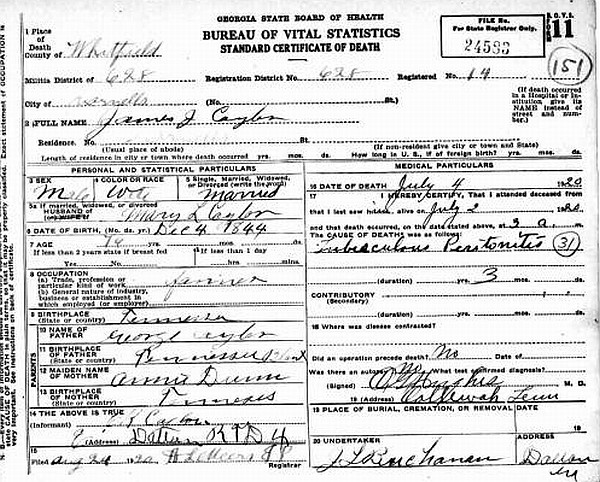 GEORGIA STATE BOARD OF HEALTH
BUREAU OF VITAL STATISTICS
STANDARD CERTIFICATE OF DEATH
FILE No.
For State Registrar Only.
24583
11
151
1 Place of Death
County of Whitfield
Militia District of 628 Registration District No. 628 Registered No. 14
City of (No. St.)
(If death occurred in a Hospital or Institution give its NAME instead of street and number.)
2 FULL NAME James J Caylor
Residence. No. St.
(Usual place of abode) (If non-resident give city or town and State)
Length of residence in city or town where death occurred yrs. mos. ds. How long in U. S., if of foreign birth? yrs. mos. ds.
PERSONAL AND STATISTICAL PARTICULARS
3 SEX Male
4 COLOR OR RACE
5 Single, Married, Widowed, or Divorced (write the word) Married
5a If married, widowed, or divorced
HUSBAND of
(or) WIFE of Mary L Caylor
6 DATE OF BIRTH (Mo. da. yr.) Dec 4 1844
7 AGE yrs. mos. ds.
If less than 2 years state if breast fed
Yes No
If less than 1 day
hrs. mins.
8 OCCUPATION
(a) Trade, profession or particular kind of work farmer
(b) General nature of industry, business or establishment in which employed (or employer)
9 BIRTHPLACE
(State or country) Tennessee
PARENTS
10 NAME OF FATHER George Caylor
11 BIRTHPLACE OF FATHER
(State or country) Tennessee
12 MAIDEN NAME OF MOTHER Annie Dunn
13 BIRTHPLACE OF MOTHER
(State or country)
14 THE ABOVE IS TRUE
(Informant) Caylor
(Address) Dalton R F D 4
15
Filed Aug 24 1920
Registrar
MEDICAL PARTICULARS
16 DATE OF DEATH July 4 1920
17 I HEREBY CERTIFY, That I attended deceased from
that I last saw him alive on July 2 1920
and that death occurred, on the date stated above, at 3 a m.
The CAUSE OF DEATH was as follows:
Tuberculous Peritonitis 31
(duration) 3 yrs. mos. ds.
CONTRIBUTORY
(Secondary)
(duration) yrs. mos. ds.
18 Where was disease contracted?
Did an operation precede death? No Date of
Was there an autopsy? No What test confirmed diagnosis?
(Signed) M. D.
19 (Address) Tenn
19 PLACE OF BURIAL, CREMATION, OR REMOVAL DATE
19
20 UNDERTAKER
J L Buchanan
ADDRESS
Dalton